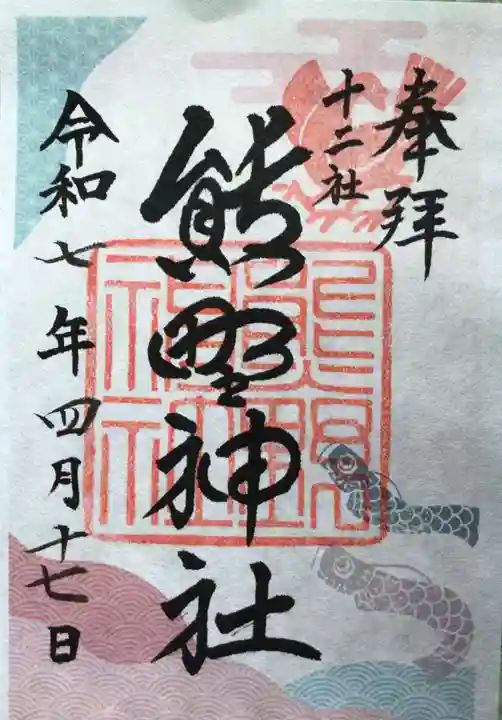 奉拝
十二社
熊野神社
令和七年四月十七日